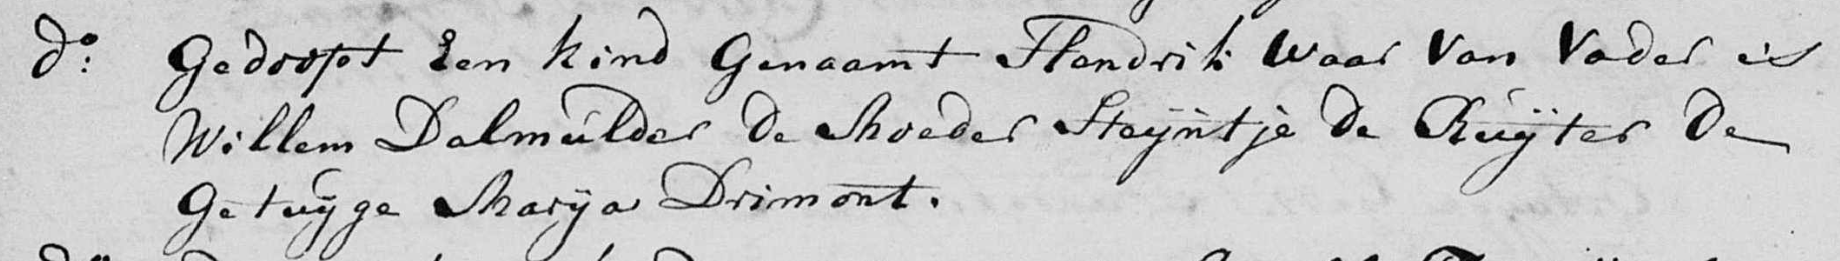 do: Gedoopt Een kind Genaamt Hendrik Waar Van Vader is
Willem Dalmulder de Moeder Steÿntje de Ruÿter De
Getuÿge Marÿa Drimont.